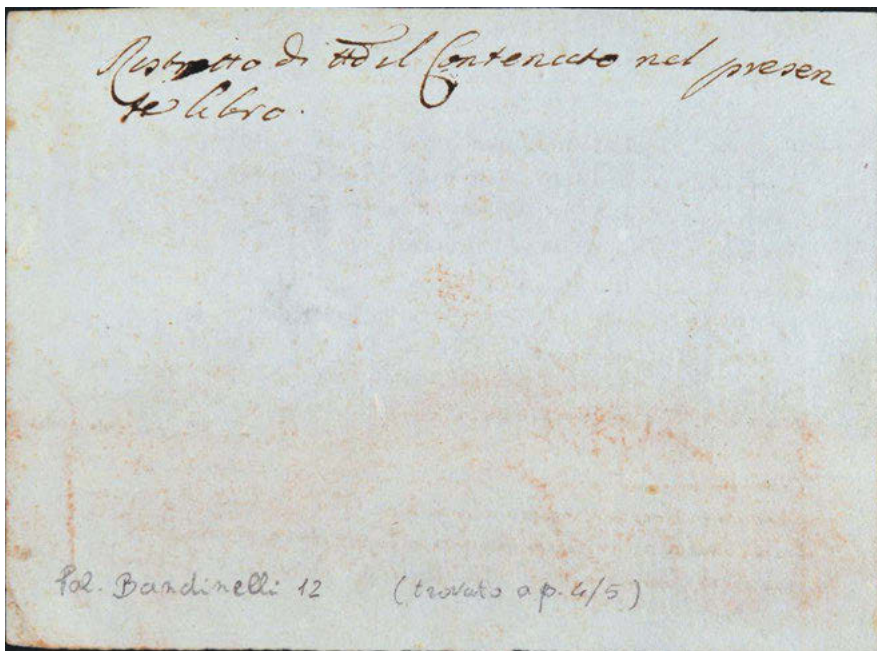 Ristretto di ttō il Contenuto nel presen
te libro.
Pal. Bandinelli 12 (trovato a p. 4/5)